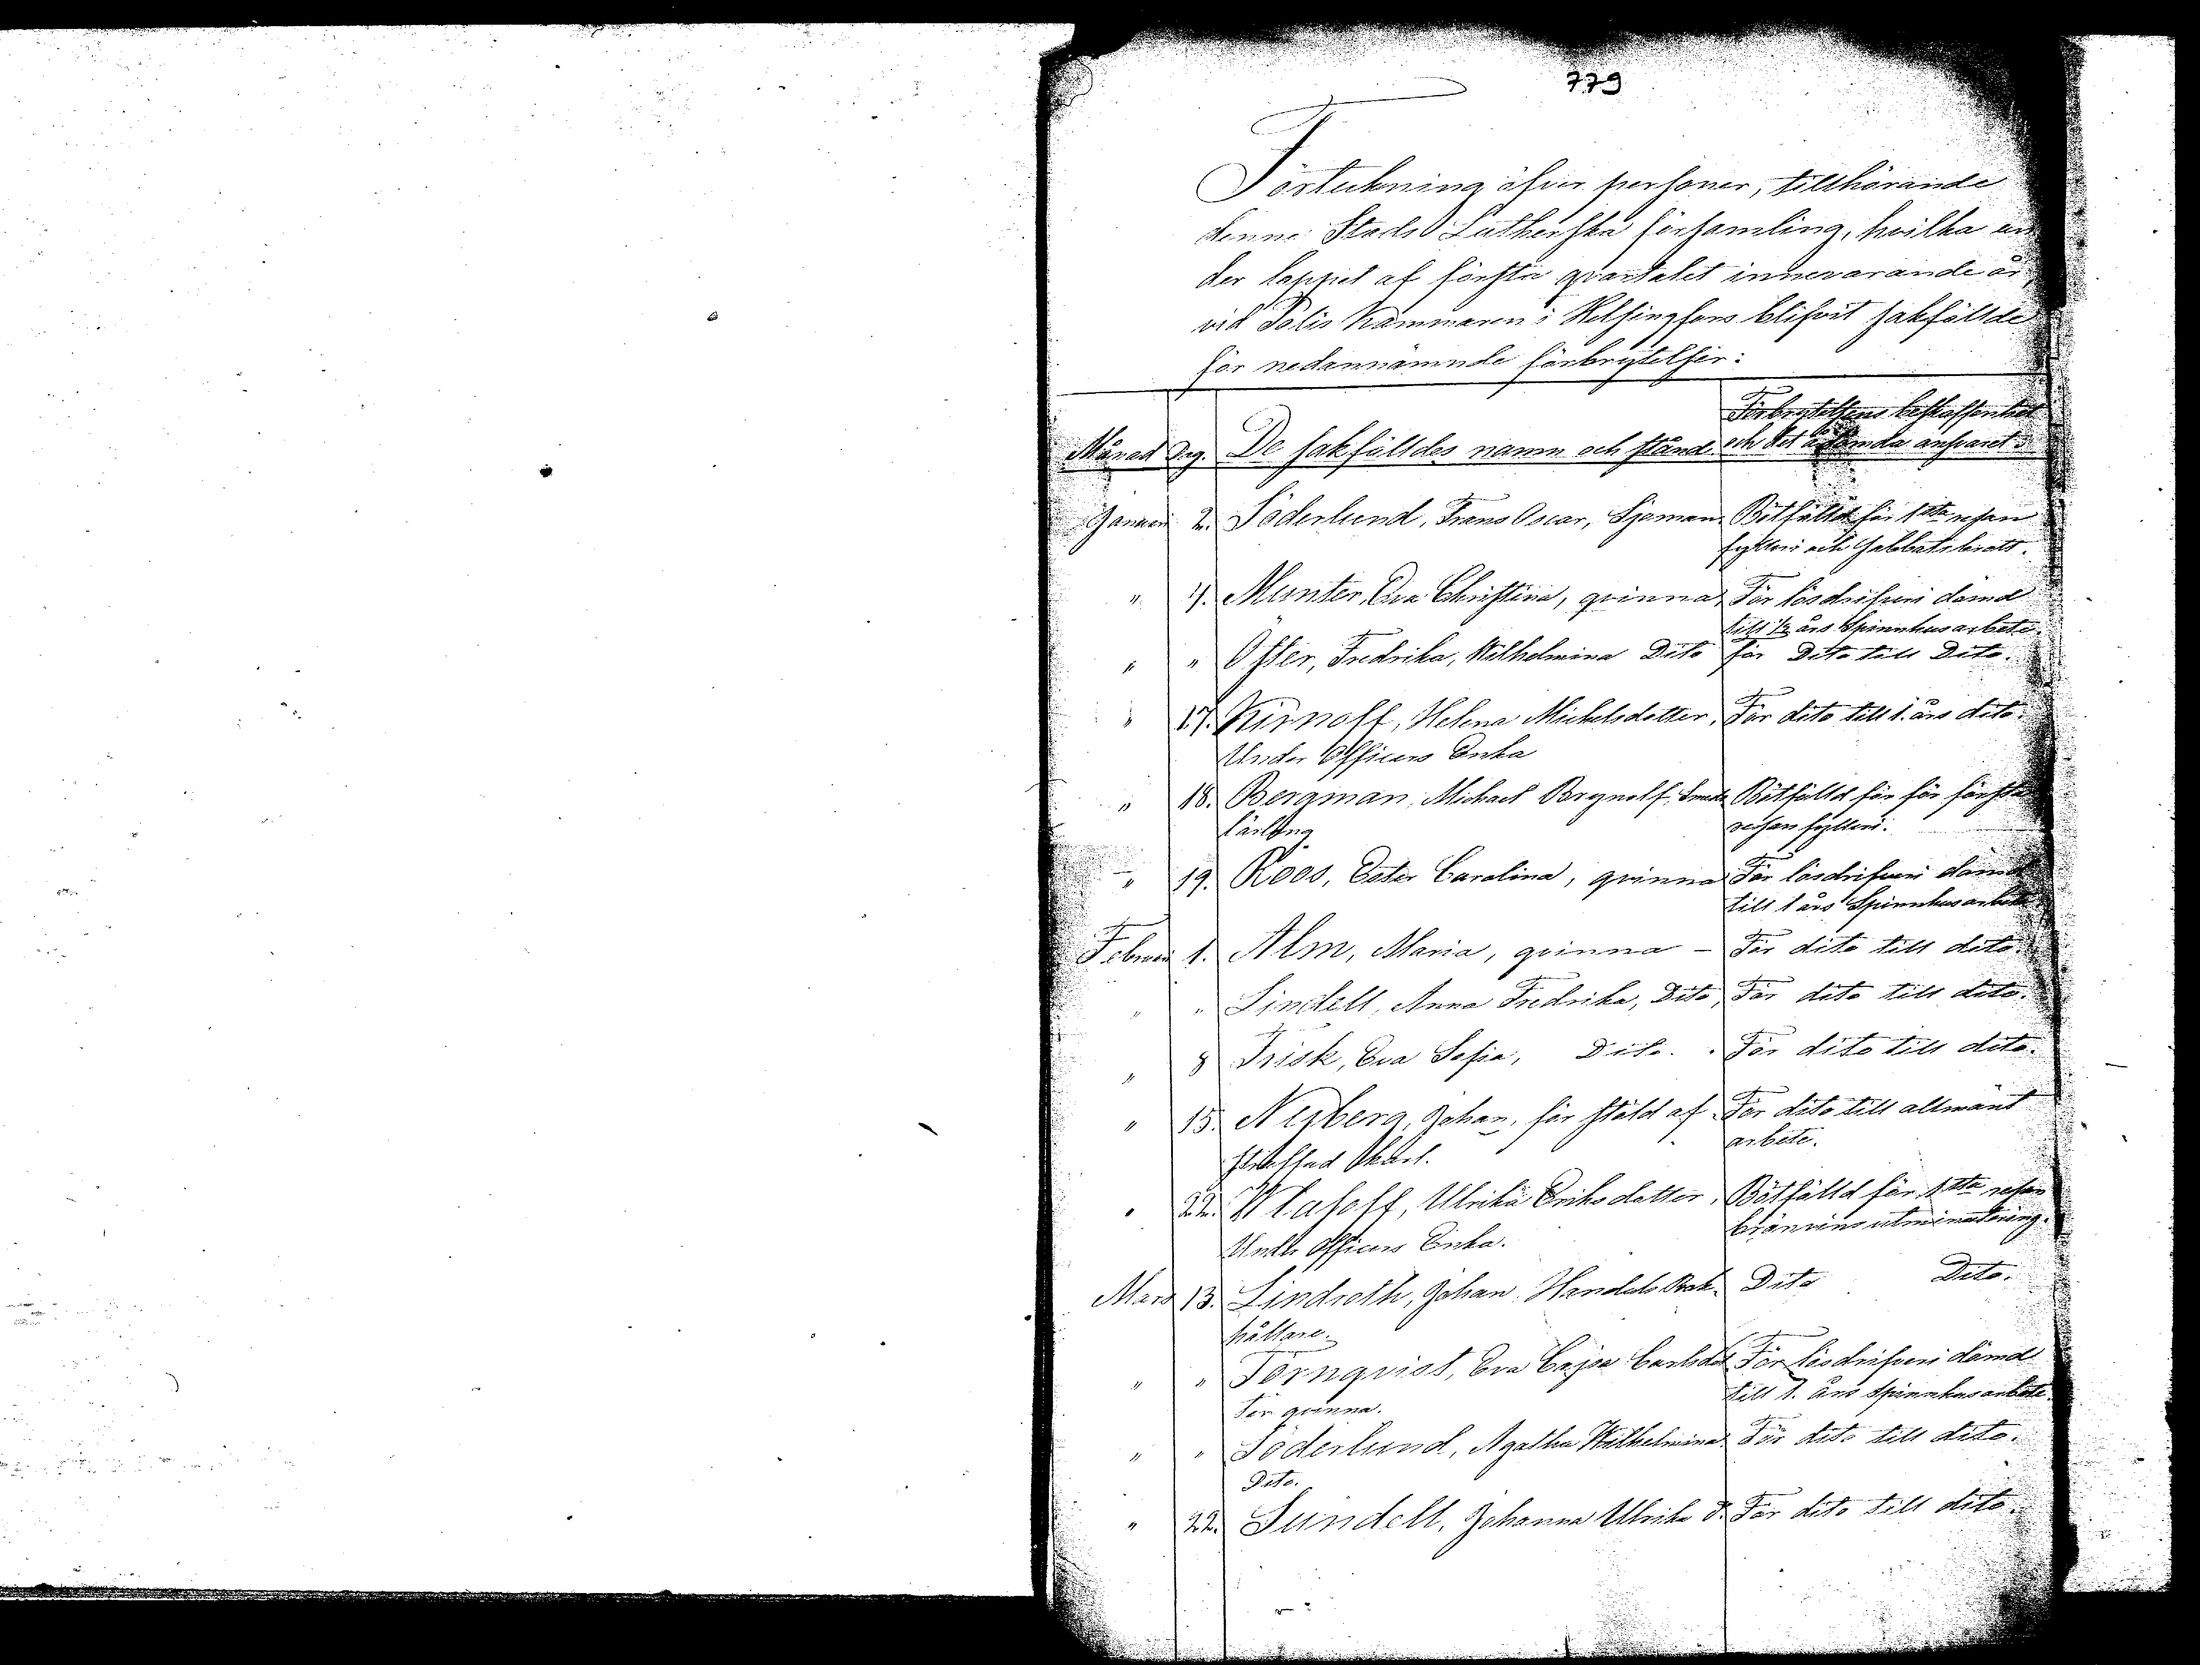 779
Förteckning öfver personer, tillhörande
denne Stads Lutherska församling, hvilka un
der loppet af första qvartalet innevarande år,
vid Polis Kammaren i Helsingfors blifvit sakfällde
för nedannämnde förbrytelser:
Månad Dag. De sakfälldes namn och stånd. Förbrytelsens beskaffenhet
och det ådömda ansvaret:
Januari 2. Söderlund, Frans Oscar, Sjöman Bötfälld för 1sta resan
fylleri och Sabbatsbrott.
" 4. Munter, Eva Christina, qvinna, För lösdrifveri dömd
till ½ års Spinnhusarbete.
" " Öster, Fredrika, Wilhelmina Dito för Dito till Dito.
" 17. Kirnoff, Helena Michelsdotter, För dito till 1. års dito.
Under Officers Enka
" 18. Bergman, Michael Brynolf, Bötfälld för för första
lärling resan fylleri.
" 19. Roos, Ester Carolina, qvinna För lösdrifveri dömd
till 1 års Spinnhusarbete
Februari 1. Alm, Maria, qvinna - För dito till dito.
" " Lindell, Anna Fredrika, Dito, För dito till dito.
" 8 Frisk, Eva Sofia, Dito. För dito till dito.
" 15. Nyberg, Johan, för stöld af För dito till allmänt
straffad Karl. arbete.
" 22. Wlasoff, Ulrika Eriksdotter, Bötfälld för 1sta resan
Under Officers Enka. bränvins utminutering.
Mars 13. Lindroth, Johan Handels Bok- Dito Dito.
hållare.
" " Törnqvist, Eva Cajsa Carlsdot För lösdrifveri dömd
ter qvinna. till 1. års Spinnhusarbete.
" " Söderlund, Agatha Wilhelmina För dito till dito.
Dito.
" 22. Sundell, Johanna Ulrika D. För dito till dito.